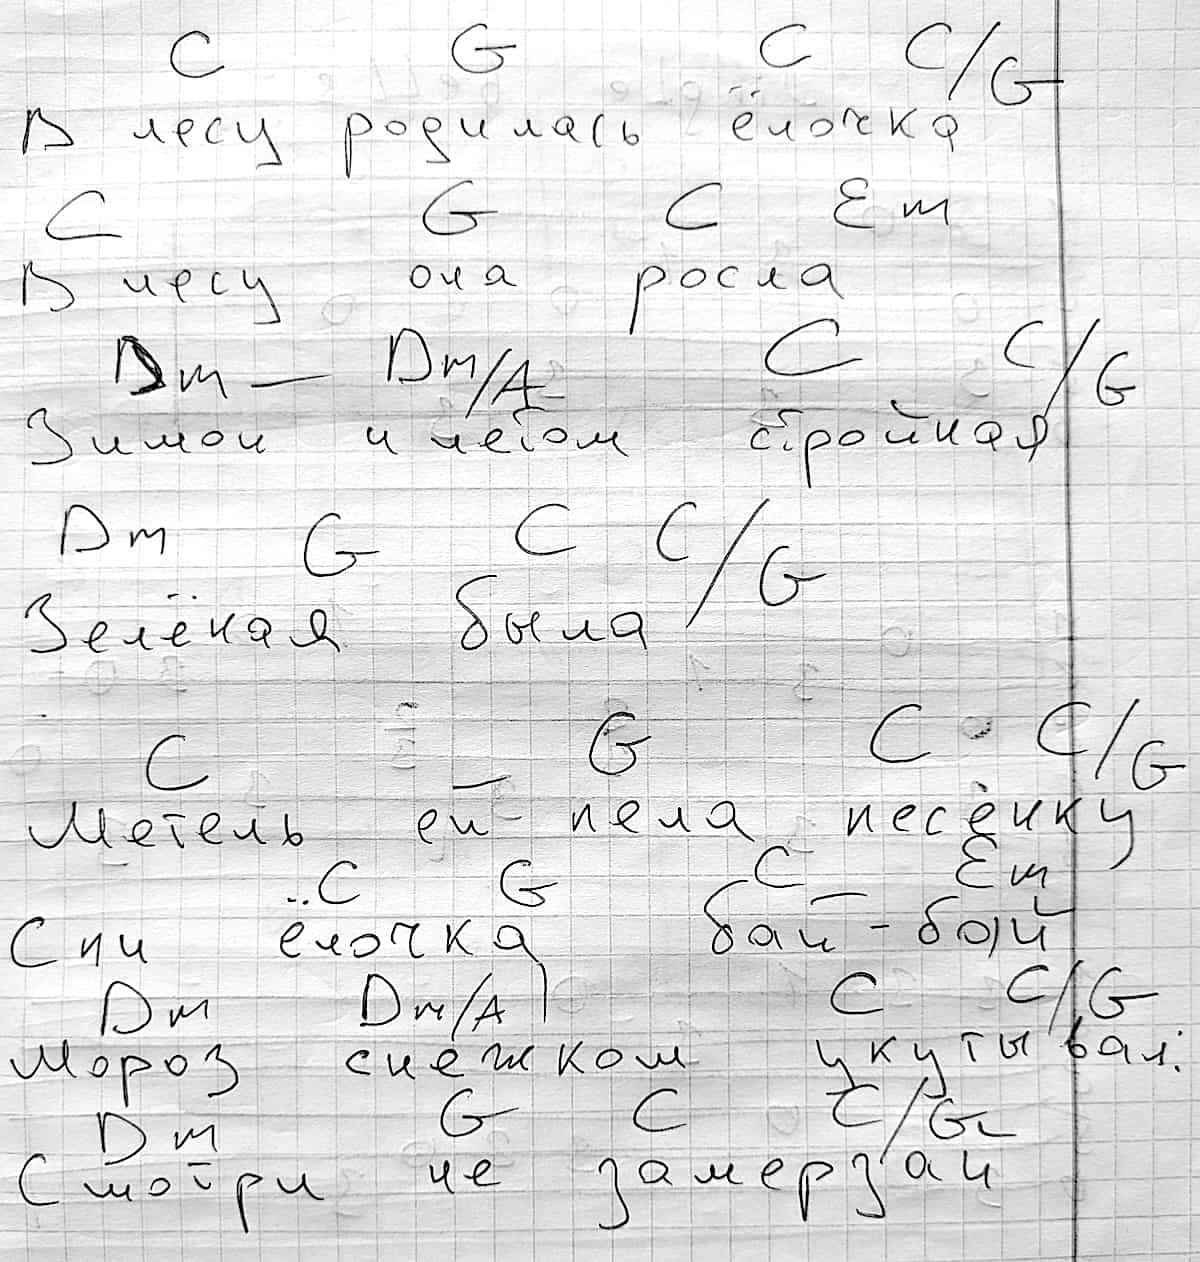 C G C C/G
В лесу родилась ёлочка
C G C Em
В лесу она росла
Dm — Dm/A C C/G
Зимои и летом стройная
Dm G C C/G
Зелёная была
C G C C/G
Метель ей пела песёнку
C G C Em
Спи ёлочка, бай-бай
Dm Dm/A C C/G
Мороз снежком укутывал:
Dm G C C/G
Смотри не замерзаи